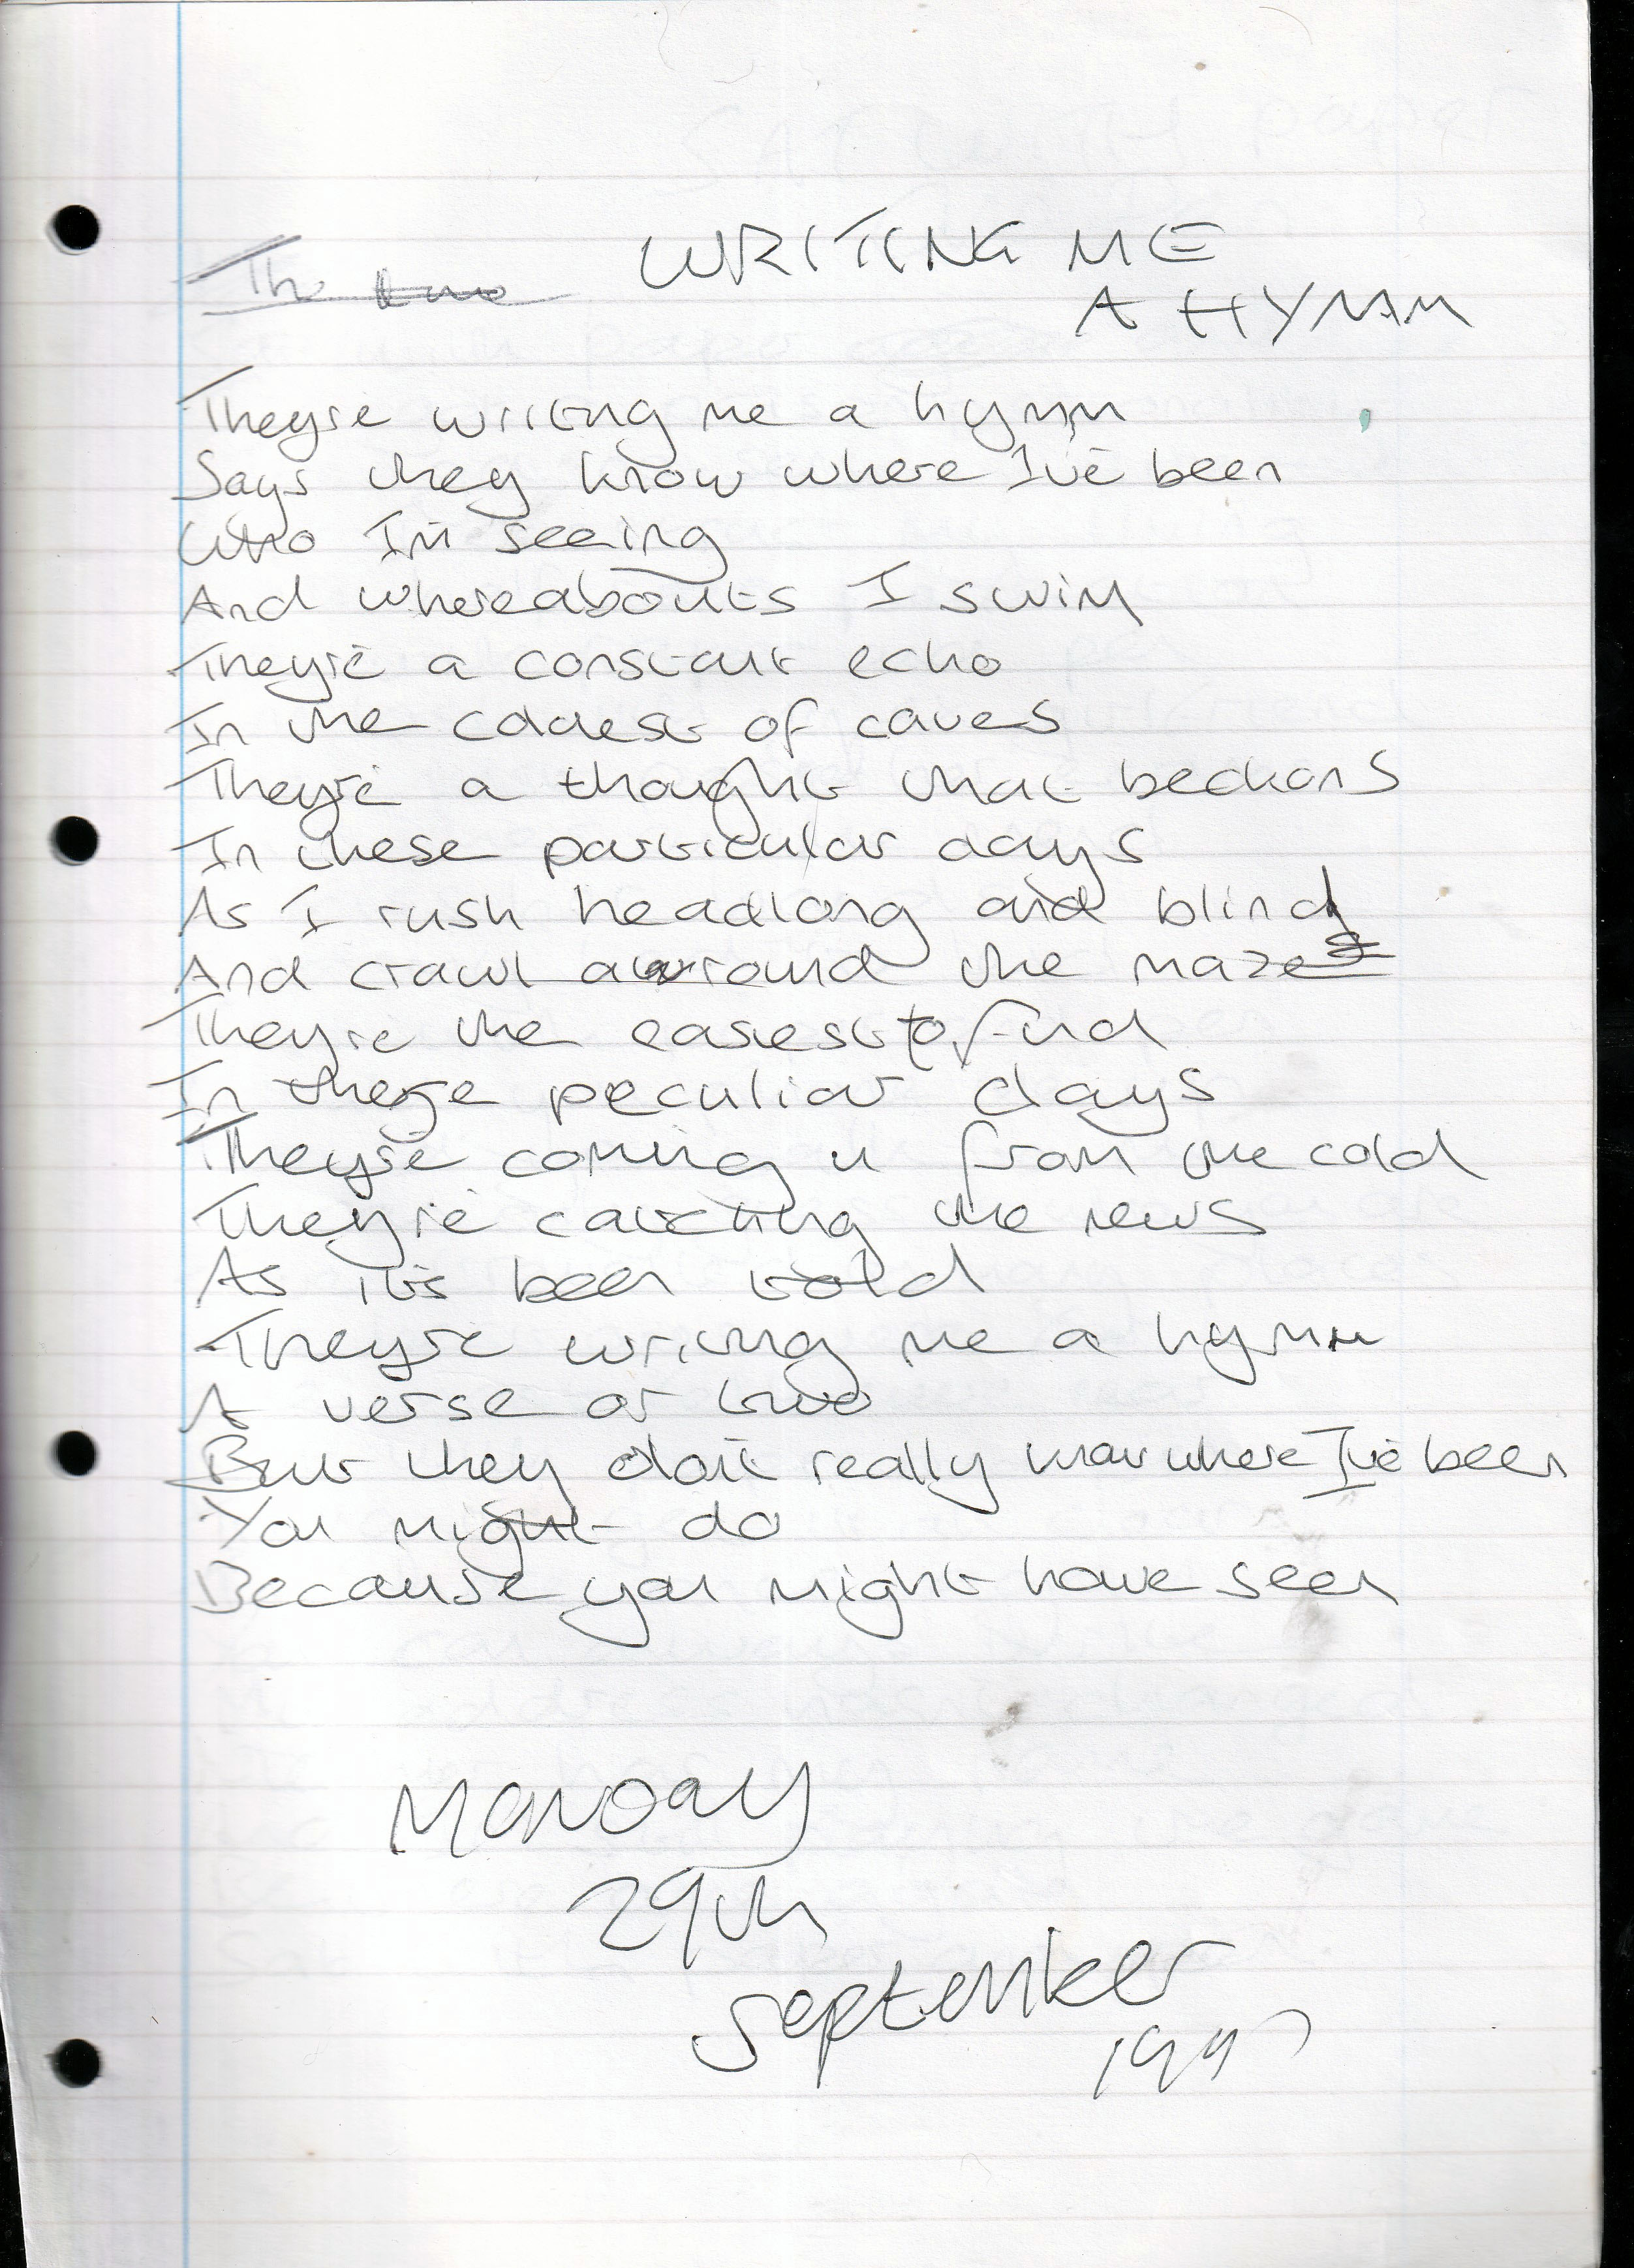 WRITING ME
A HYMM
They're writing me a hymn
Says they know where I've been
Who I'm seeing
And whereabouts I swim
They're a constant echo
In the coldest of caves
They're a thought that beckons
In these particular days
As I rush headlong and blind
And crawl around the maze
They're the easiest to find
In these peculiar days
They're coming in from the cold
They're catching the news
As it's been told
They're writing me a hymn
A verse or two
But they don't really know where I've been
You might do
Because you might have seen
Monday
29th
September
1997